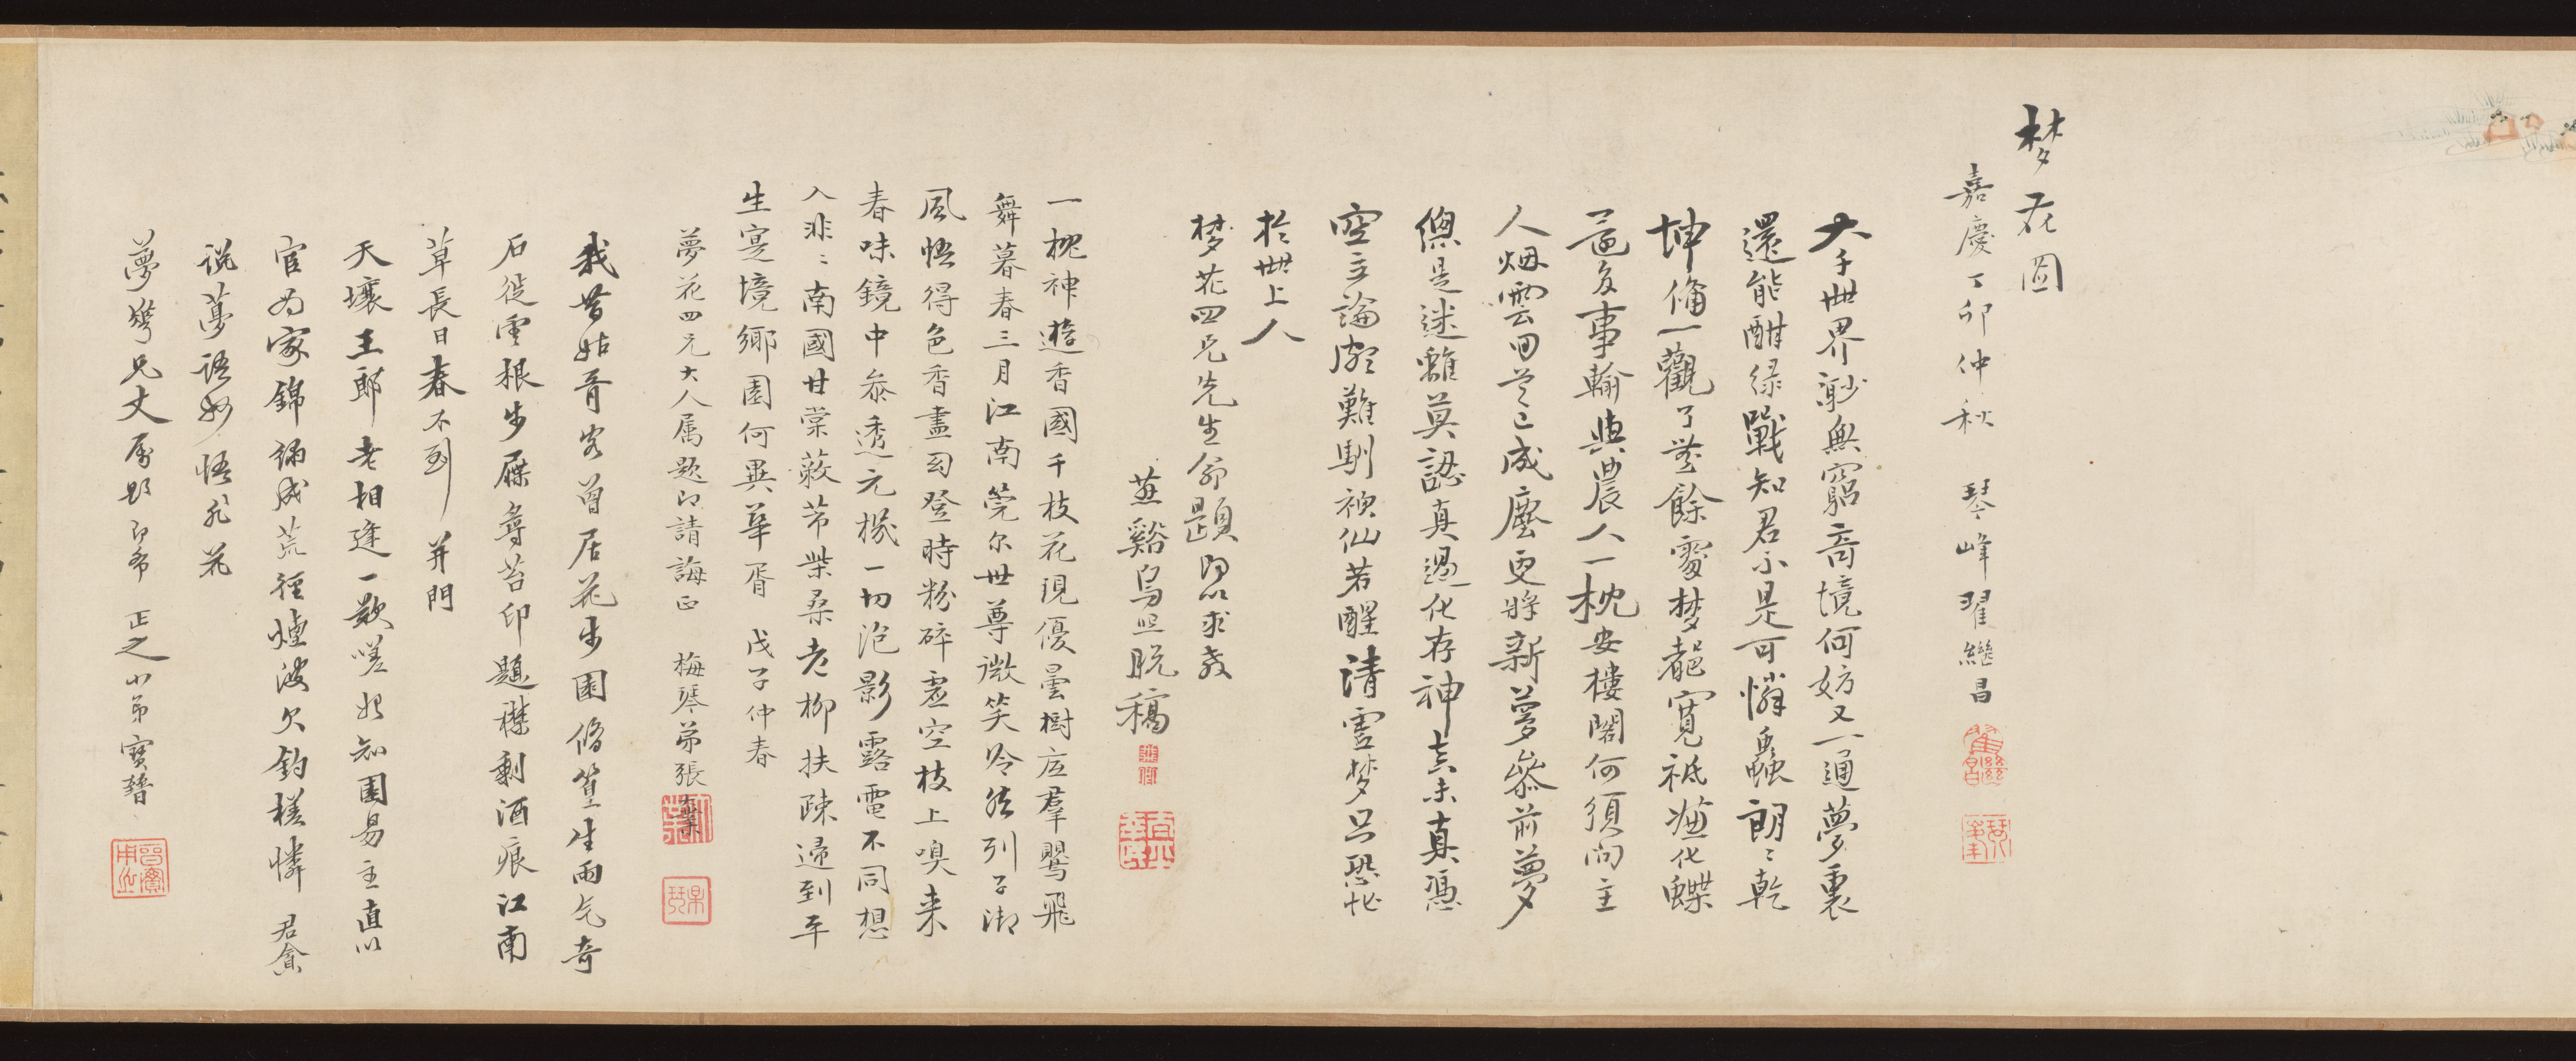 梦花圖
嘉慶丁卯仲秋 琴峰翟繼昌
大千世界渺無窮奇境何妨又一通夢裏
還能酣綠戰知君不是可憐蟲朗〻乾
坤備一觀了無餘處梦魂寬祗疑化蝶
尋事輸與農人一枕安樓閣何須向主
人烟雲回首已成塵更將新夢參前夢
總是迷離莫認真過化存神未真憑
空立論難馴神仙若醒請雲梦只恐
於世上人
梦花四兄先生命題即以求教
蕉谿烏照脫稿
一枕神遊香國千枝花現優曇樹底羣鸎飛
舞暮春三月江南莞尔世尊微笑冷然列子御
風悟得色香盡幻登時粉碎虛空枝上嗅来
春味鏡中叅透元機一切泡影露電不同想
入非〻南國甘棠蔽芾柴桑老柳扶疎遊到平
生寔境鄉園何異華胥 戊子仲春
夢花四兄大人属題即請誨正 梅琴弟張
我昔姑胥客曾居花步園脩篁生雨气奇
石從雲根步屧尋苔印題襟剩酒痕江南
草長日春不到并門
天壤王郎老相逢一歎嗟始知園易主直以
官為家錦綉成荒徑煙波欠釣槎憐君貪
說夢語妙悟死花
夢花兄丈属題即希正之小弟寶